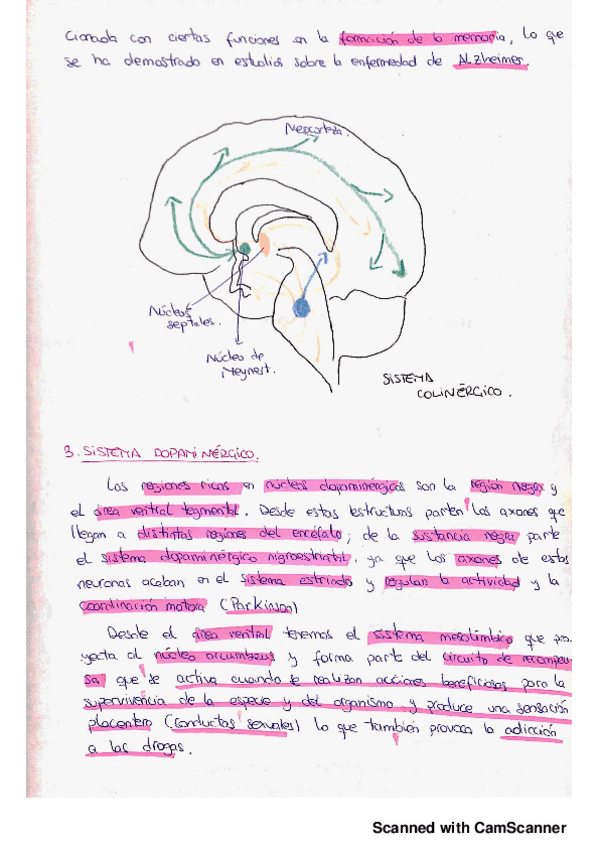 cionada con ciertas funciones en la formación de la memoria, lo que
se ha demostrado en estudios sobre la enfermedad de Alzheimer.
Neocorteza.
Núcleos
septales.
Núcleo de
Meynest.
SISTEMA
COLINÉRGICO.
3. SISTEMA DOPAMINÉRGICO.
Las regiones ricas en núcleos dopaminérgicos son la región negra y
el área ventral tegmental. Desde estas estructuras parten los axones que
llegan a distintas regiones del encéfalo; de la sustancia negra parte
el sistema dopaminérgico nigroestriatal, ya que los axones de estas
neuronas acaban en el sistema estriado y regulan la actividad y la
coordinación motora (Parkinson)
Desde el área ventral tenemos el sistema mesolímbico que pro-
yecta al núcleo accumbens y forma parte del circuito de recompen
sa que se activa cuando se realizan acciones beneficiosas para la
supervivencia de la especie y del organismo y produce una sensación
placentera (conductas sexuales) lo que también provoca la adicción
a las drogas.
Scanned with CamScanner